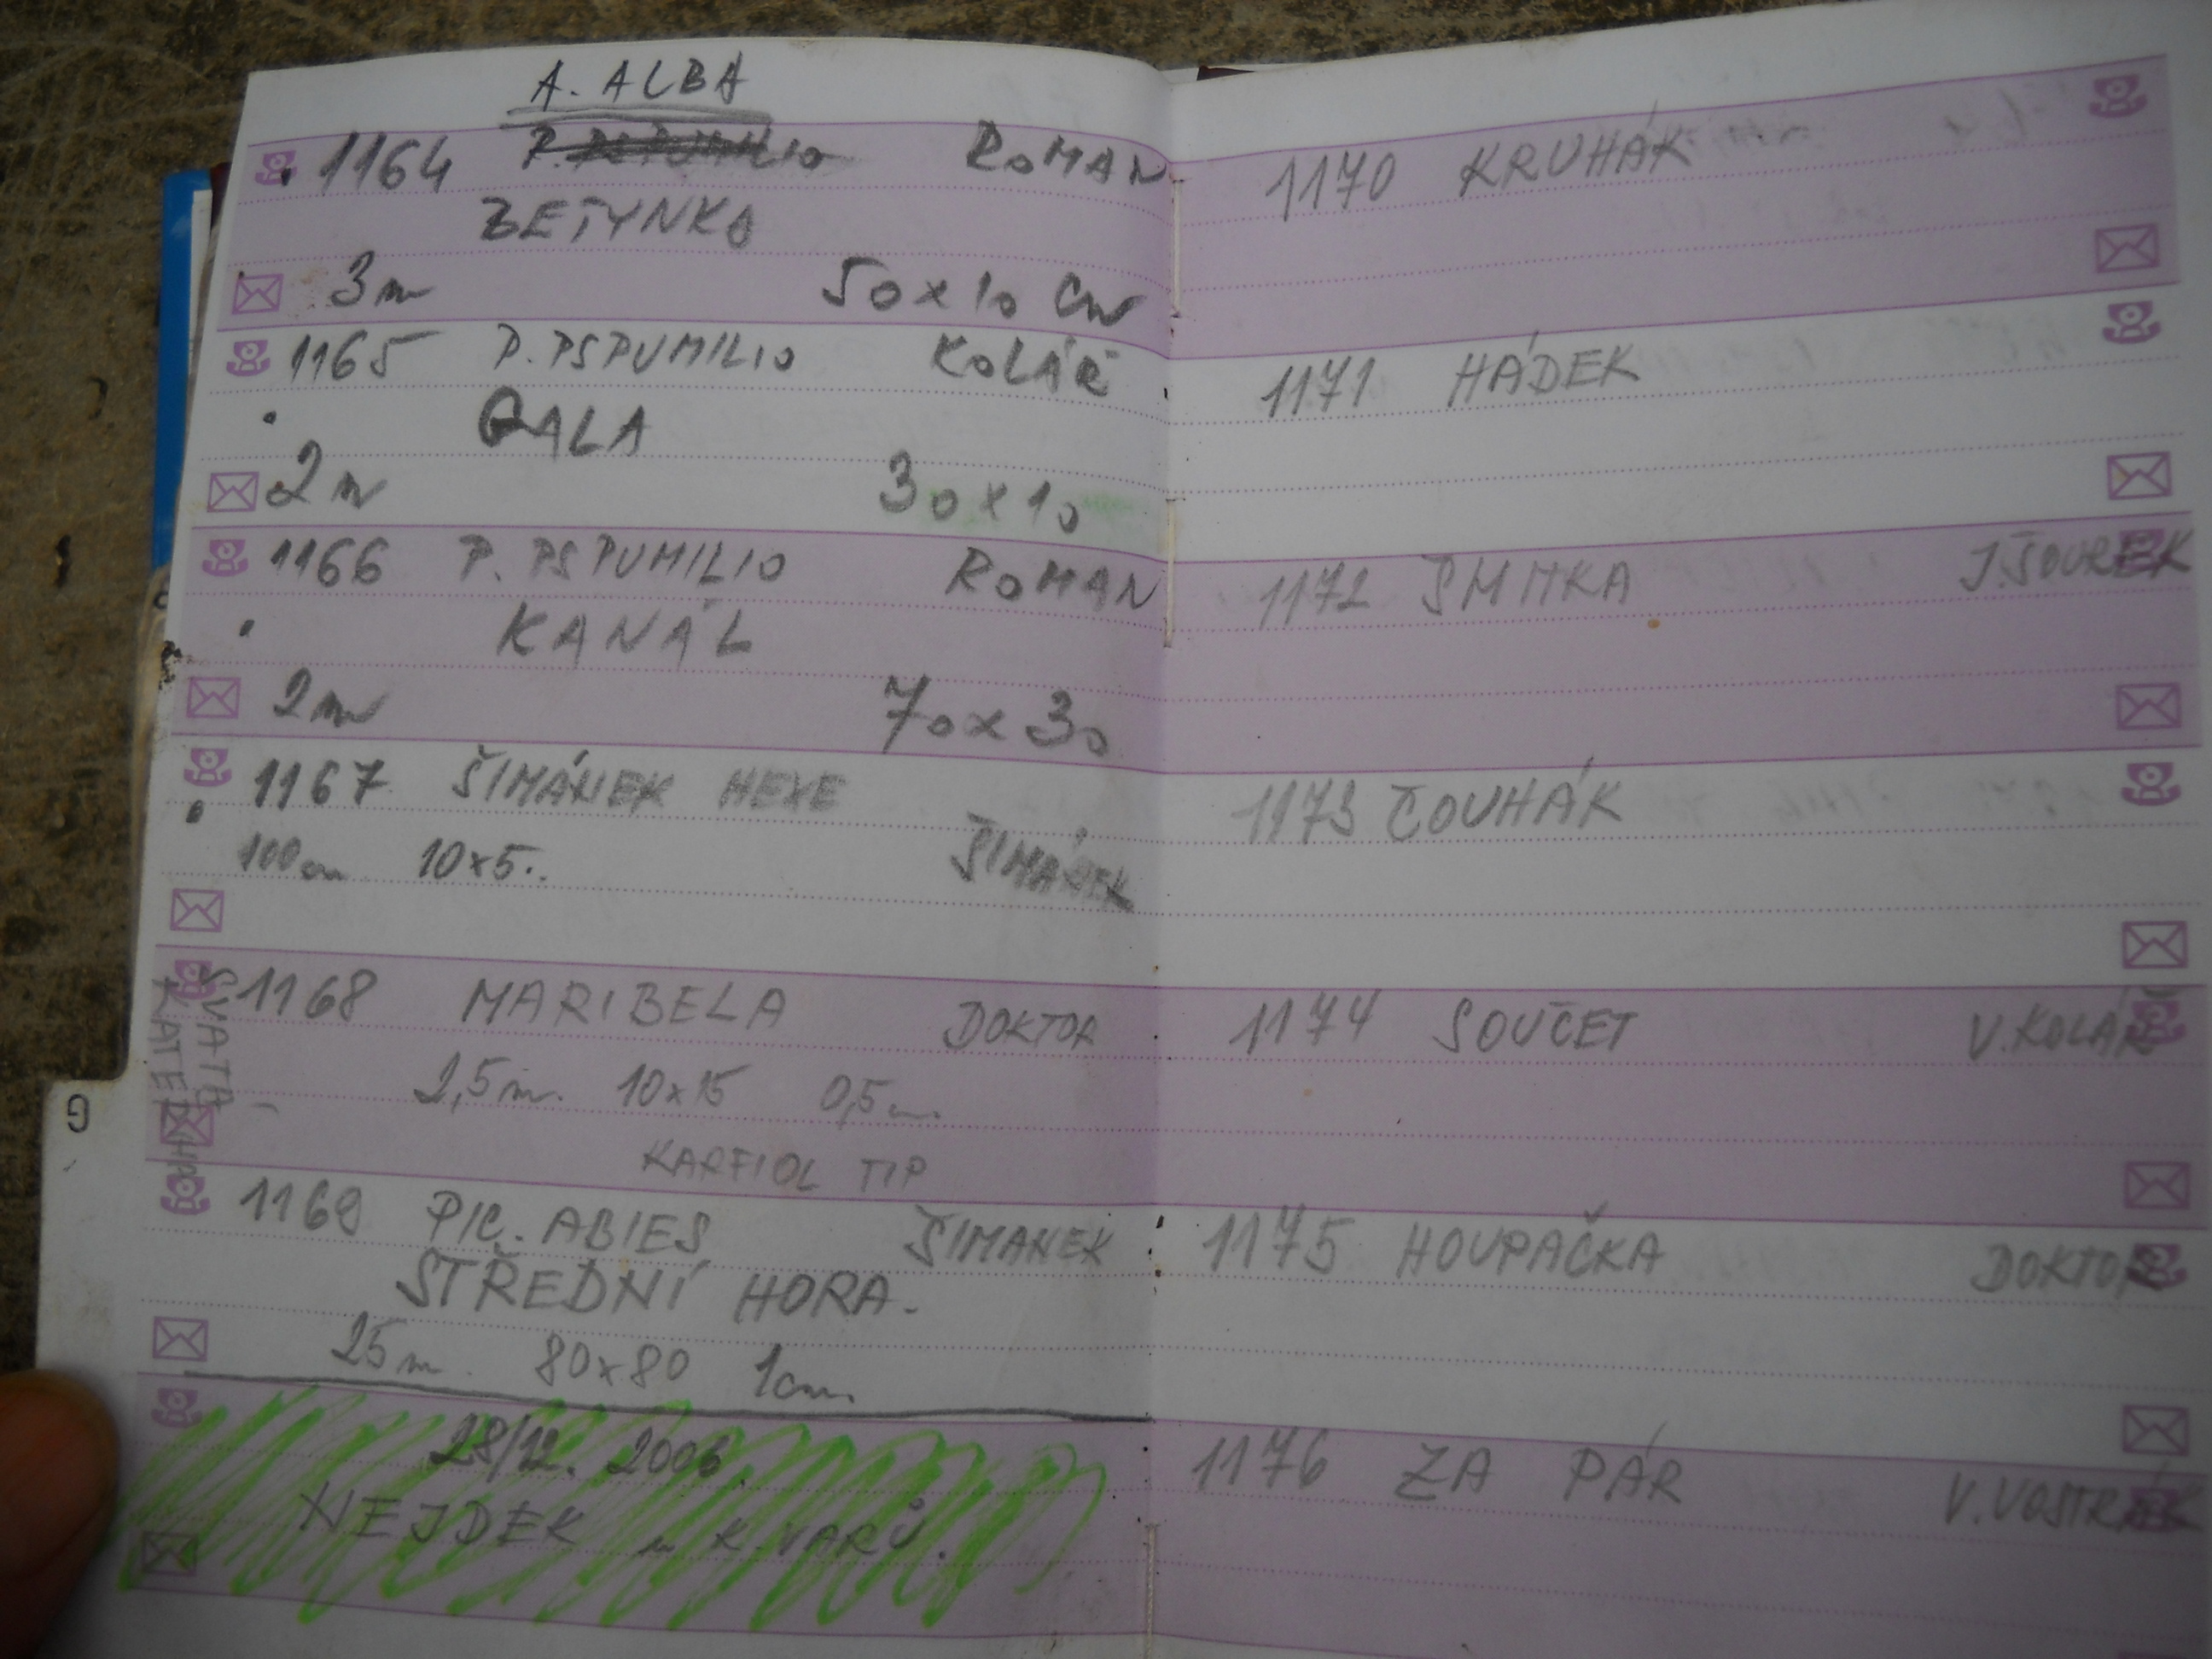 A. ALBA
1164 P. PSPUMILIO ROMAN
BETYNKA
3m 50x10 cm
1165 P. PSPUMILIO KOLÁŘ
GALA
2m 30x10
1166 P. PSPUMILIO ROMAN
KANÁL
2m 70x30
1167 ŠIMÁNEK HEXE
100cm 10x5.. ŠIMÁNEK
SVATÁ
KATEŘINA
1168 MARIBELA DOKTOR
2,5m. 10x15 0,5cm.
KARFIOL TIP
1169 PIC. ABIES ŠIMANEK
STŘEDNÍ HORA.
25m. 80x80 1cm.
28/12. 2006.
NEJDEK u K. VARŮ.
G
1170 KRUHÁK
1171 HÁDEK
1172 J. ŠOUREK
1173 ČOUHÁK
1174 SOUČET V. KOLÁŘ
1175 HOUPAČKA DOKTOR
1176 ZA PÁR V. VOSTŘÁK